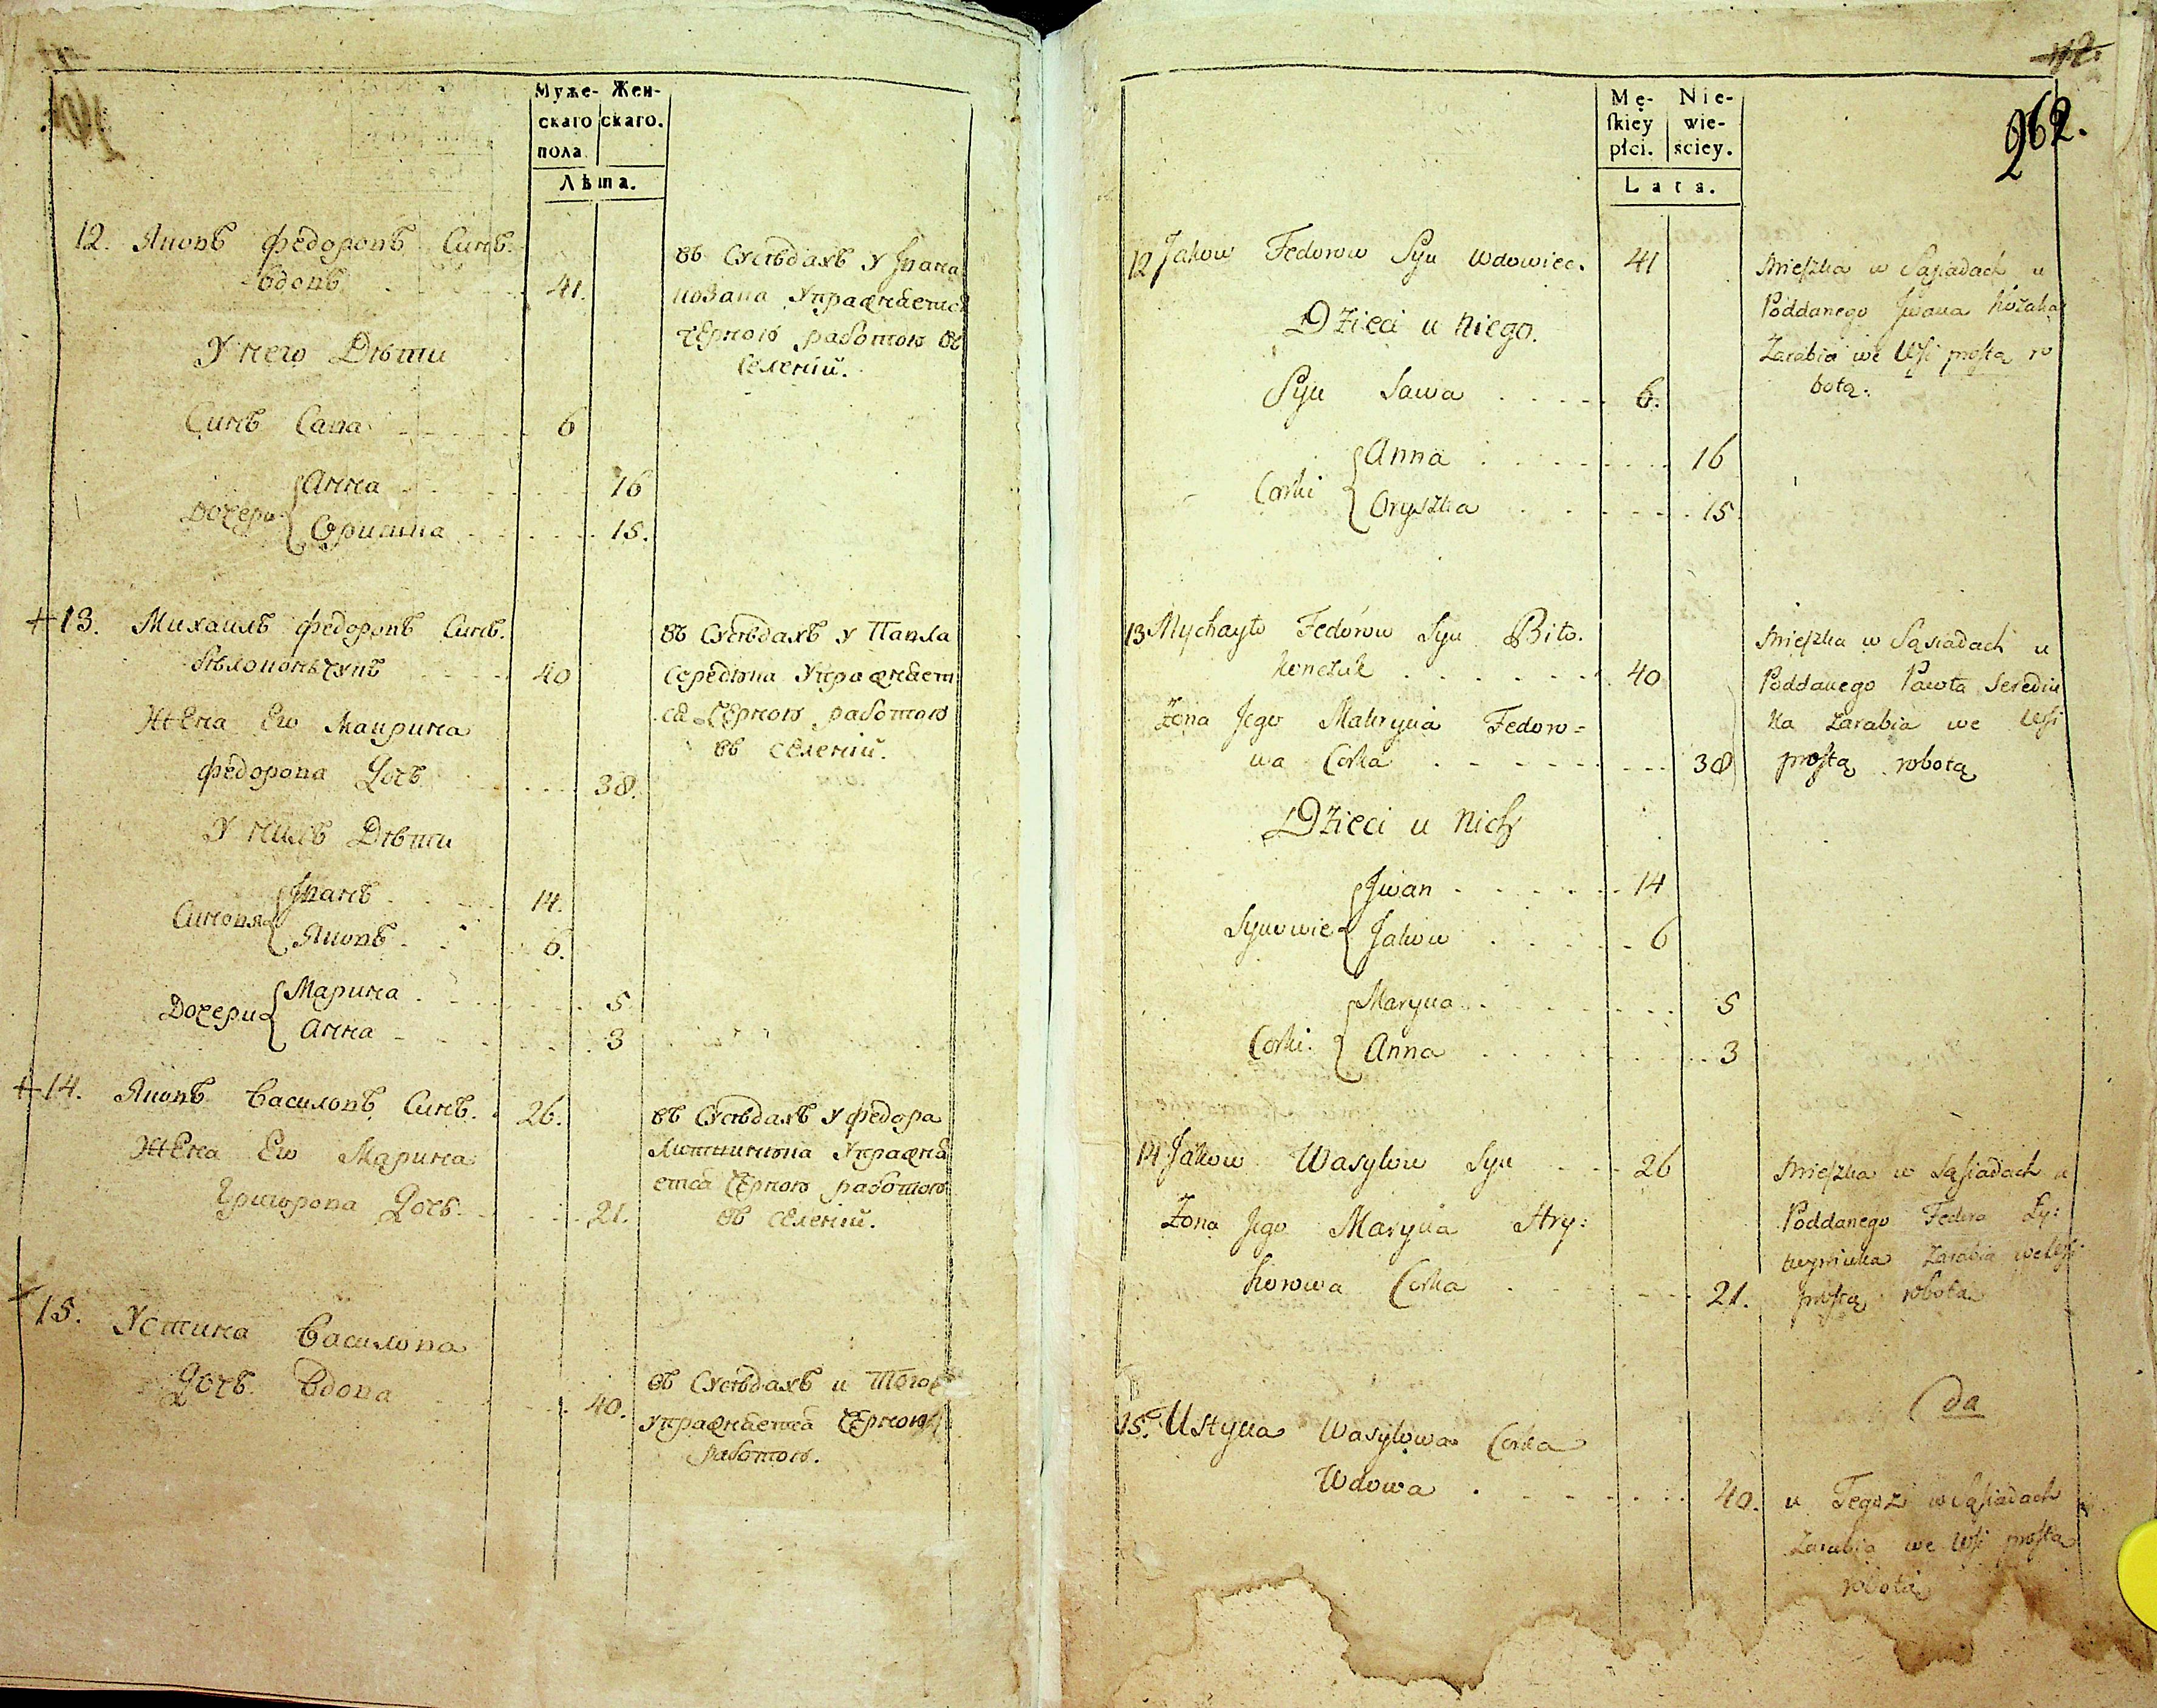 Муже- Жен-
скаго скаго.
пола
Лѣта.
12. Яковъ Федоровъ Синъ.
вдовъ 41.
въ Сусѣдахъ у Ивана
Козака Упражнѣется
Чèрною работою въ
Селеніи.
У него Дѣти
Синъ Сава 6
Дочери { Анна 16
Оришка 15.
+13. Михаилъ Федоровъ Синъ.
Бѣлоконьчукъ 40
въ Сусѣдахъ у Павла
Середюка Упражнѣет
ся Черною работою
въ селеніи.
Жена Его Маврина
Федорова Дочь 38.
У нихъ Дѣти
Синовя { Иванъ 14.
Яковъ 6.
Дочери { Марина 5
Анна 3
+14. Яковъ Василовъ Синъ. 26.
въ Сусѣдахъ у Федора
Литвинюка Упражнѣ
ется Черною работою
въ селеніи.
Жена Его Марина
Григорова Дочь. 21.
15. Устина Василова
Дочь Вдова 40.
въ Сусѣдахъ и Того
упражнѣется Черною
работою.
42.
262.
Mę- Nie-
skiey wie-
płci. ściey.
Lata.
12 Jakow Fedorow Syn Wdowiec. 41
Mieszka w Sąsiadach u
Poddanego Jwana Kozaka
Zarabia we Wsi prostą ro
botą.
Dzieci u Niego.
Syn Sawa 6.
Corki { Anna 16
Oryszka 15.
13 Mychayło Fedorow Syn Biło-
konczuk 40
Mieszka w Sąsiadach u
Poddanego Pawła Srediu
ka zarabia we Wsi
prostą robotą
Żona Jego Mawryna Fedoro=
wa Corka 38
Dzieci u Nich
Synowie { Jwan 14
Jakow 6
Corki. { Maryna 5
Anna 3
14 Jakow Wasylow Syn 26
Mieszka w Sąsiadach u
Poddanego Fedora Ly:
twyniuka Zarabia we Wsi
prostą robotą
Żona Jego Maryna Hry:
horowa Corka 21.
15. Ustyna Wasylowa Corka
Wdowa 40.
u Tegoż w Sąsiadach
Zarabia we Wsi prostą
robotą